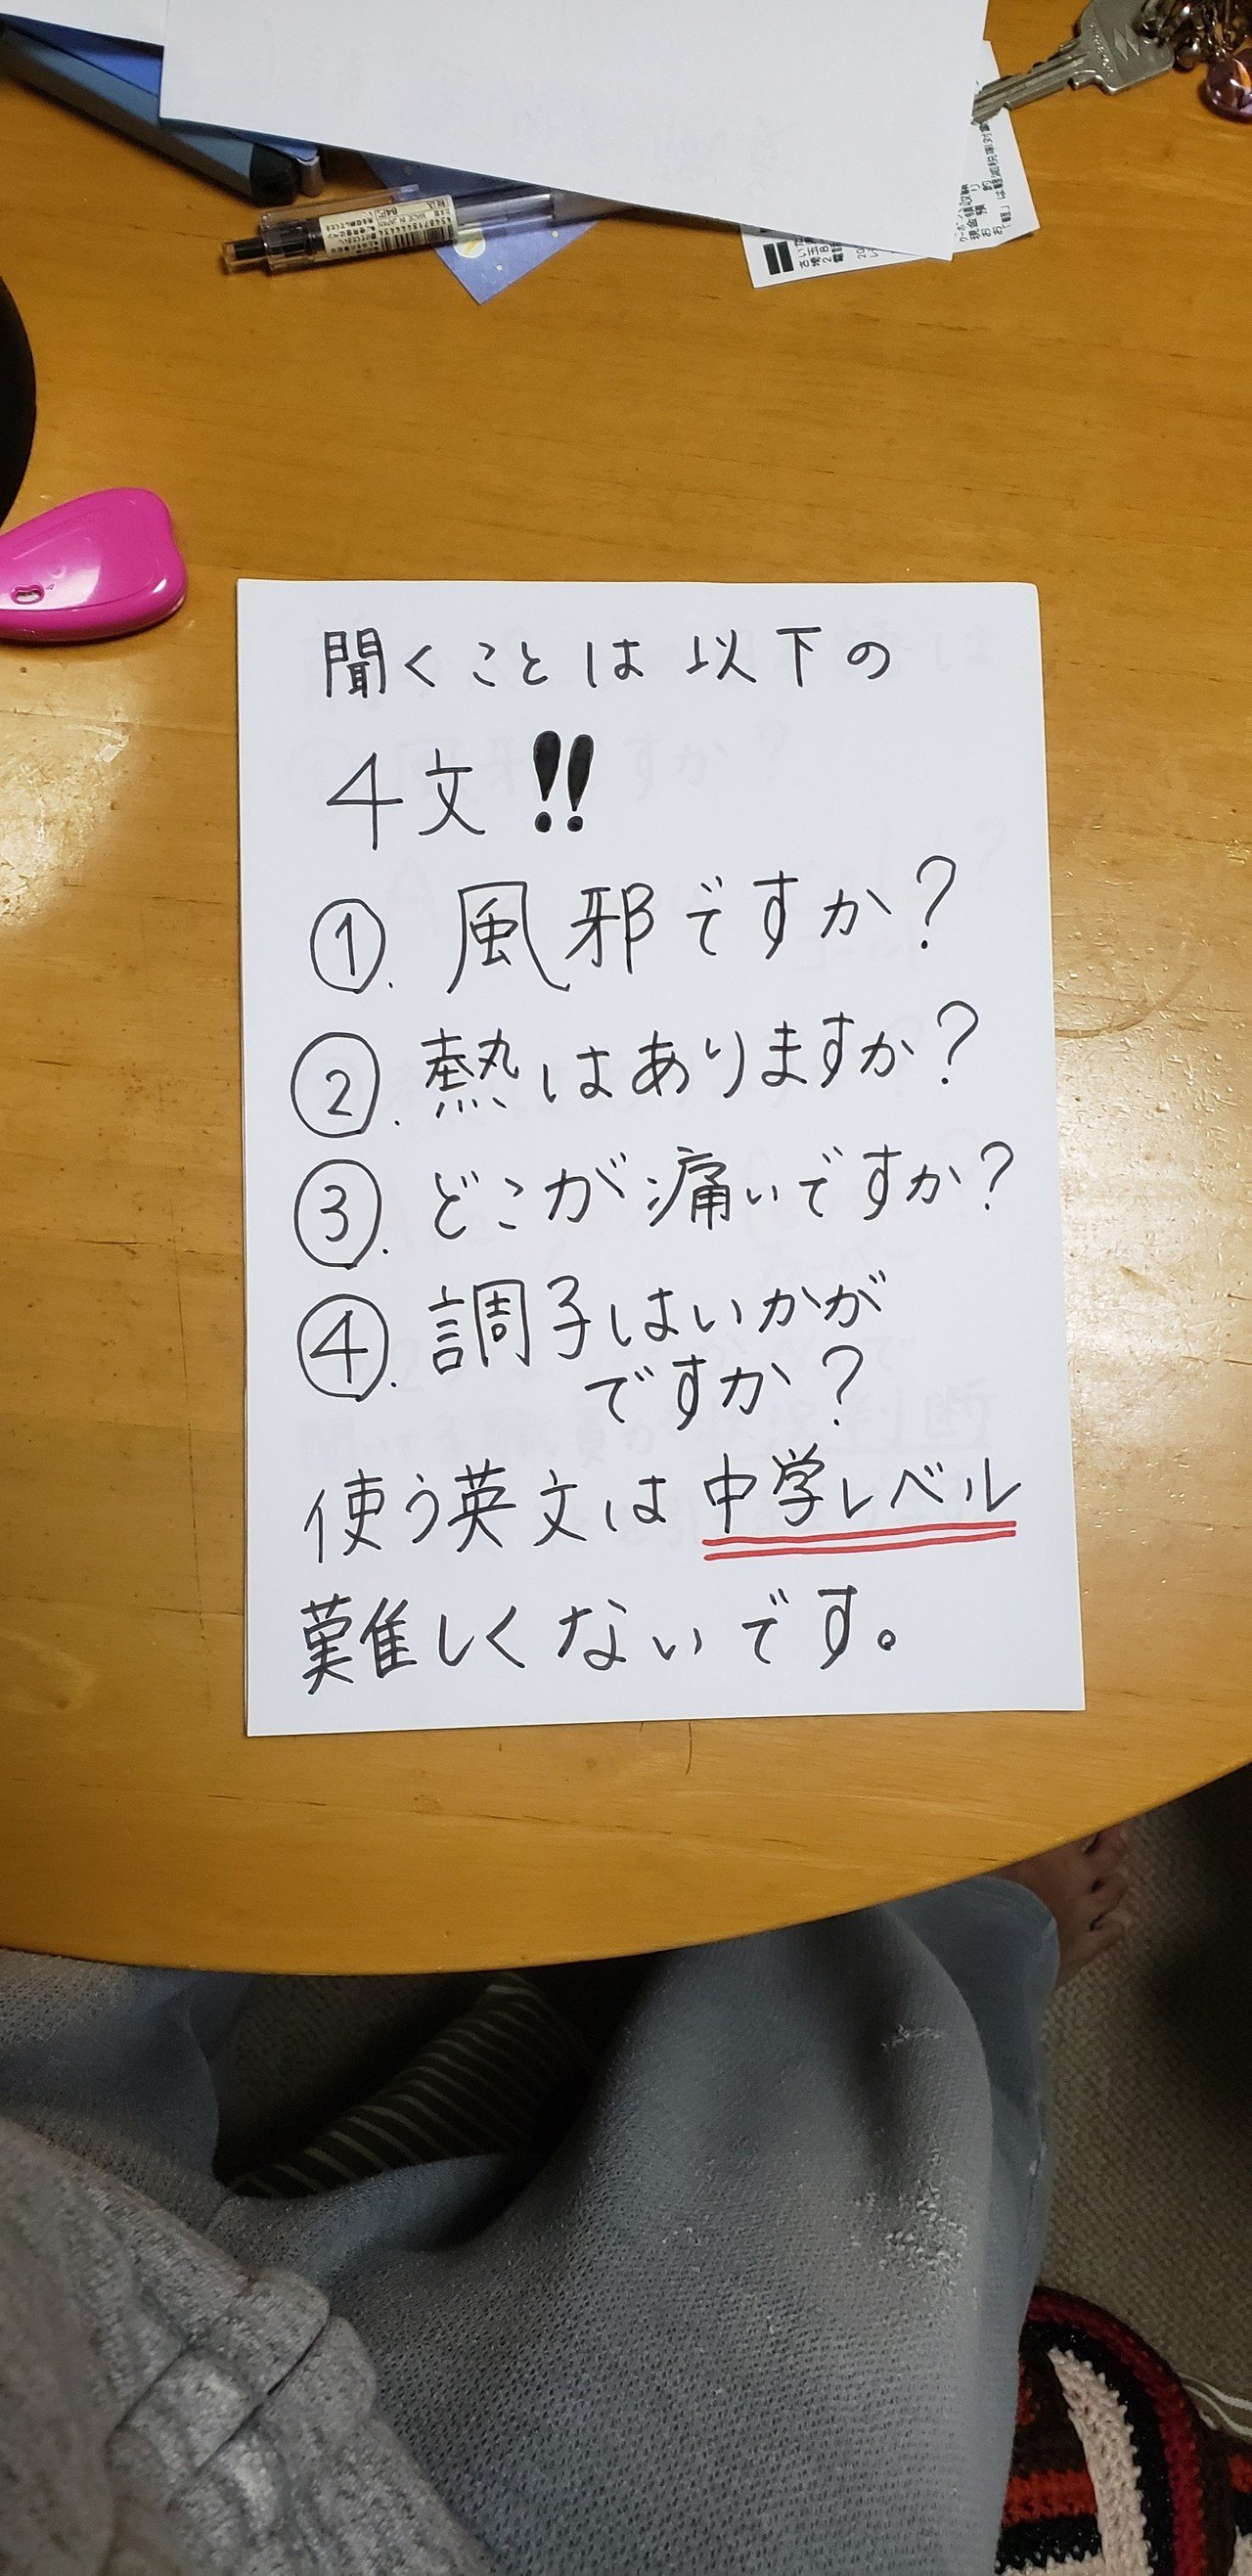 聞くことは以下の
4文!!
①. 風邪ですか?
②. 熱はありますか?
③. どこが痛いですか?
④. 調子はいかが
ですか?
使う英文は中学レベル
難しくないです。